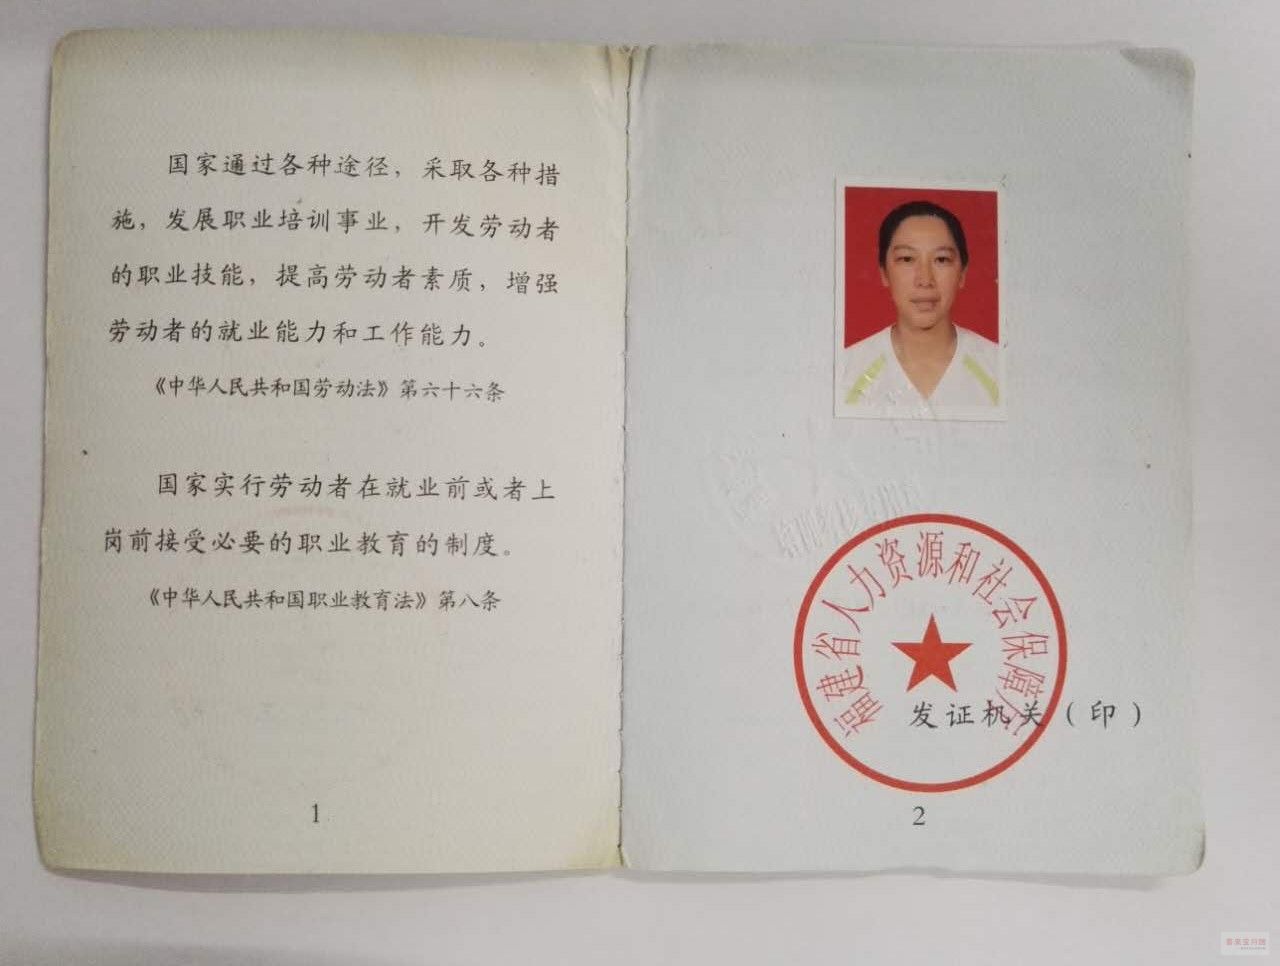 国家通过各种途径，采取各种措
施，发展职业培训事业，开发劳动者
的职业技能，提高劳动者素质，增强
劳动者的就业能力和工作能力。
《中华人民共和国劳动法》第六十六条
国家实行劳动者在就业前或者上
岗前接受必要的职业教育的制度。
《中华人民共和国职业教育法》第八条
1
福建省人力资源和社会保障厅
发证机关（印）
2